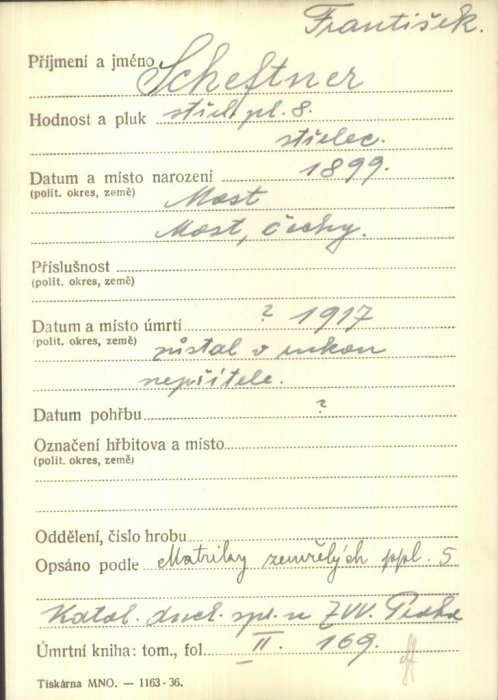 František.
Příjmení a jméno Scheftner
Hodnost a pluk střel. pl. 8.
střelec.
Datum a místo narození 1899.
(polit. okres, země) Most
Most, Čechy.
Příslušnost
(polit. okres, země)
Datum a místo úmrtí ? 1917
(polit. okres, země) zůstal v rukou
nepřítele.
Datum pohřbu ?
Označení hřbitova a místo
(polit. okres, země)
Oddělení, číslo hrobu
Opsáno podle Matriky zemřelých ppl. 5
Katol. duch. spr. u ZVV. Praha
Úmrtní kniha: tom., fol. II. 169.
Tiskárna MNO. — 1163-36.